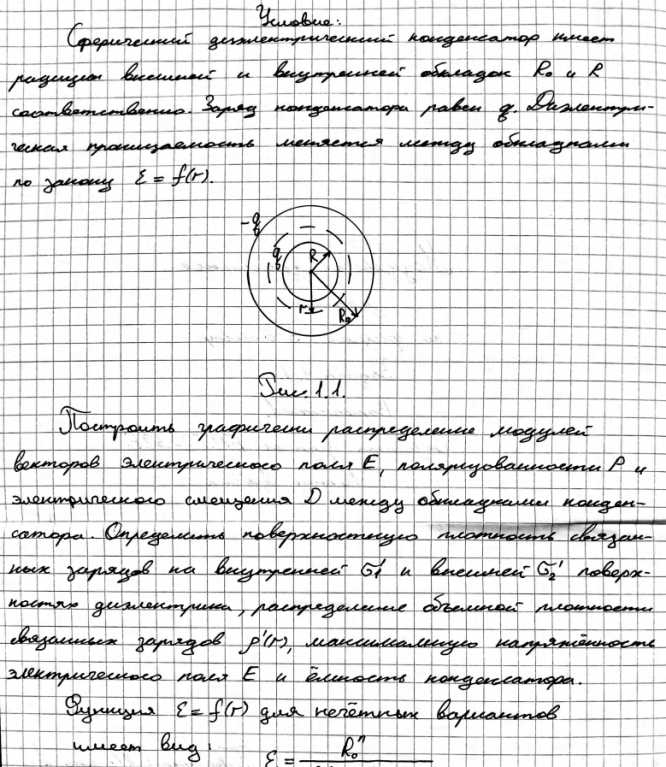 Условие:
Сферический диэлектрический конденсатор имеет
радиусы внешней и внутренней обкладок R₀ и R
соответственно. Заряд конденсатора равен q. Диэлектри-
ческая проницаемость меняется между обкладками
по закону ε = f(r).
-q
q
R
r
R₀
Рис. 1.1.
Построить графически распределение модулей
векторов электрического поля E, поляризованности P и
электрического смещения D между обкладками конден-
сатора. Определить поверхностную плотность связан-
ных зарядов на внутренней σ₁' и внешней σ₂' поверх-
ностях диэлектрика, распределение объемной плотности
связанных зарядов ρ'(r), максимальную напряжённость
электрического поля E и ёмкость конденсатора.
Функция ε = f(r) для нечётных вариантов
имеет вид: ε = R₀ⁿ